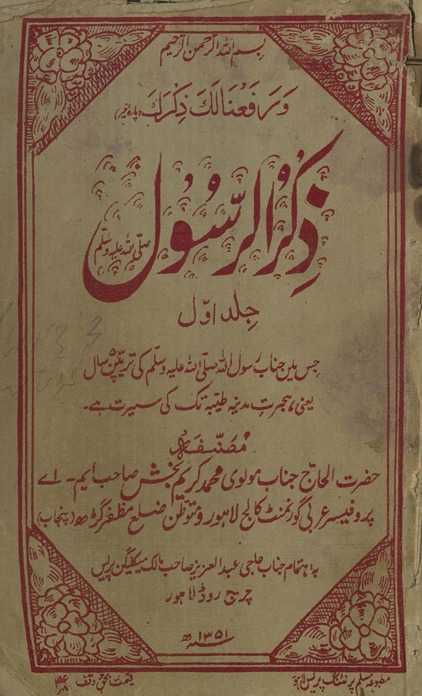 بسم اللہ الرحمن الرحیم
وَرَفَعْنَا لَكَ ذِكْرَكَ
ذِکرُ الرَّسُول
صلی اللہ علیہ وسلم
جلد اوّل
جس میں جناب رسول اللہ صلی اللہ علیہ وسلم کی تریپن سال
یعنی ہجرت مدینہ طیبہ تک کی سیرت ہے۔
مصنفہ
حضرت الحاج جناب مولوی محمد کریم بخش صاحب ایم۔ اے
پروفیسر عربی گورنمنٹ کالج لاہور و متوطن ضلع مظفر گڑھ (پنجاب)
بہ اہتمام جناب حاجی عبد العزیز صاحب مالک میکلیگن پریس
چرچ روڈ لاہور
۱۳۵۱ھ
مطبوعہ مسلم پرنٹنگ پریس لاہور
قیمت